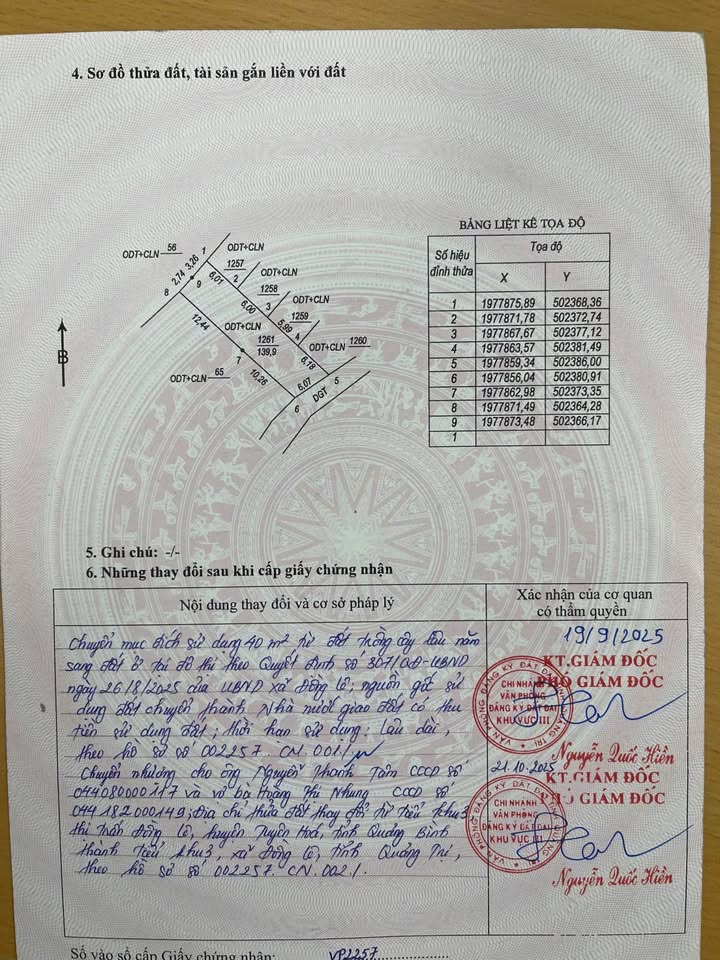 4. Sơ đồ thửa đất, tài sản gắn liền với đất
BẢNG LIỆT KÊ TỌA ĐỘ
Số hiệu đỉnh thửa
Tọa độ
X Y
1 1977875,89 502368,36
2 1977871,78 502372,74
3 1977867,67 502377,12
4 1977863,57 502381,49
5 1977859,34 502386,00
6 1977856,04 502380,91
7 1977862,98 502373,35
8 1977871,49 502364,28
9 1977873,48 502366,17
1
ODT+CLN 56
1
ODT+CLN
1257
2
ODT+CLN
1258
3
ODT+CLN
1259
4
ODT+CLN 1260
2,74
3,26
9
8
6,01
6,00
5,99
6,18
12,44
ODT+CLN
1261
139,9
7
10,26
ODT+CLN 65
6,07
5
6
DGT
B
5. Ghi chú: -/-
6. Những thay đổi sau khi cấp giấy chứng nhận
Nội dung thay đổi và cơ sở pháp lý
Xác nhận của cơ quan
có thẩm quyền
Chuyển mục đích sử dụng 40 m² từ đất trồng cây lâu năm
sang đất ở tại đô thị theo Quyết định số 307/QĐ-UBND
ngày 26/8/2025 của UBND xã Đồng Lê; nguồn gốc sử
dụng đất chuyển thành Nhà nước giao đất có thu
tiền sử dụng đất; thời hạn sử dụng: Lâu dài,
theo hồ sơ số 002257.CN.001./.
Chuyển nhượng cho ông Nguyễn Thanh Tâm CCCD số
044080000117 và vợ bà Hoàng Thị Nhung CCCD số
044182000149; Địa chỉ thửa đất thay đổi từ Tiểu khu 3
thị trấn Đồng Lê, huyện Tuyên Hoá, tỉnh Quảng Bình
thành Tiểu khu 3, xã Đồng Lê, tỉnh Quảng Trị,
theo hồ sơ số 002257.CN.002./.
19/9/2025
KT.GIÁM ĐỐC
PHÓ GIÁM ĐỐC
VĂN PHÒNG ĐĂNG KÝ ĐẤT ĐAI TỈNH QUẢNG TRỊ
CHI NHÁNH
VĂN PHÒNG
ĐĂNG KÝ ĐẤT ĐAI
KHU VỰC III
Nguyễn Quốc Hiền
21.10.2025
KT.GIÁM ĐỐC
PHÓ GIÁM ĐỐC
VĂN PHÒNG ĐĂNG KÝ ĐẤT ĐAI TỈNH QUẢNG TRỊ
CHI NHÁNH
VĂN PHÒNG
ĐĂNG KÝ ĐẤT ĐAI
KHU VỰC III
Nguyễn Quốc Hiền
Số vào sổ cấp Giấy chứng nhận: VP2257